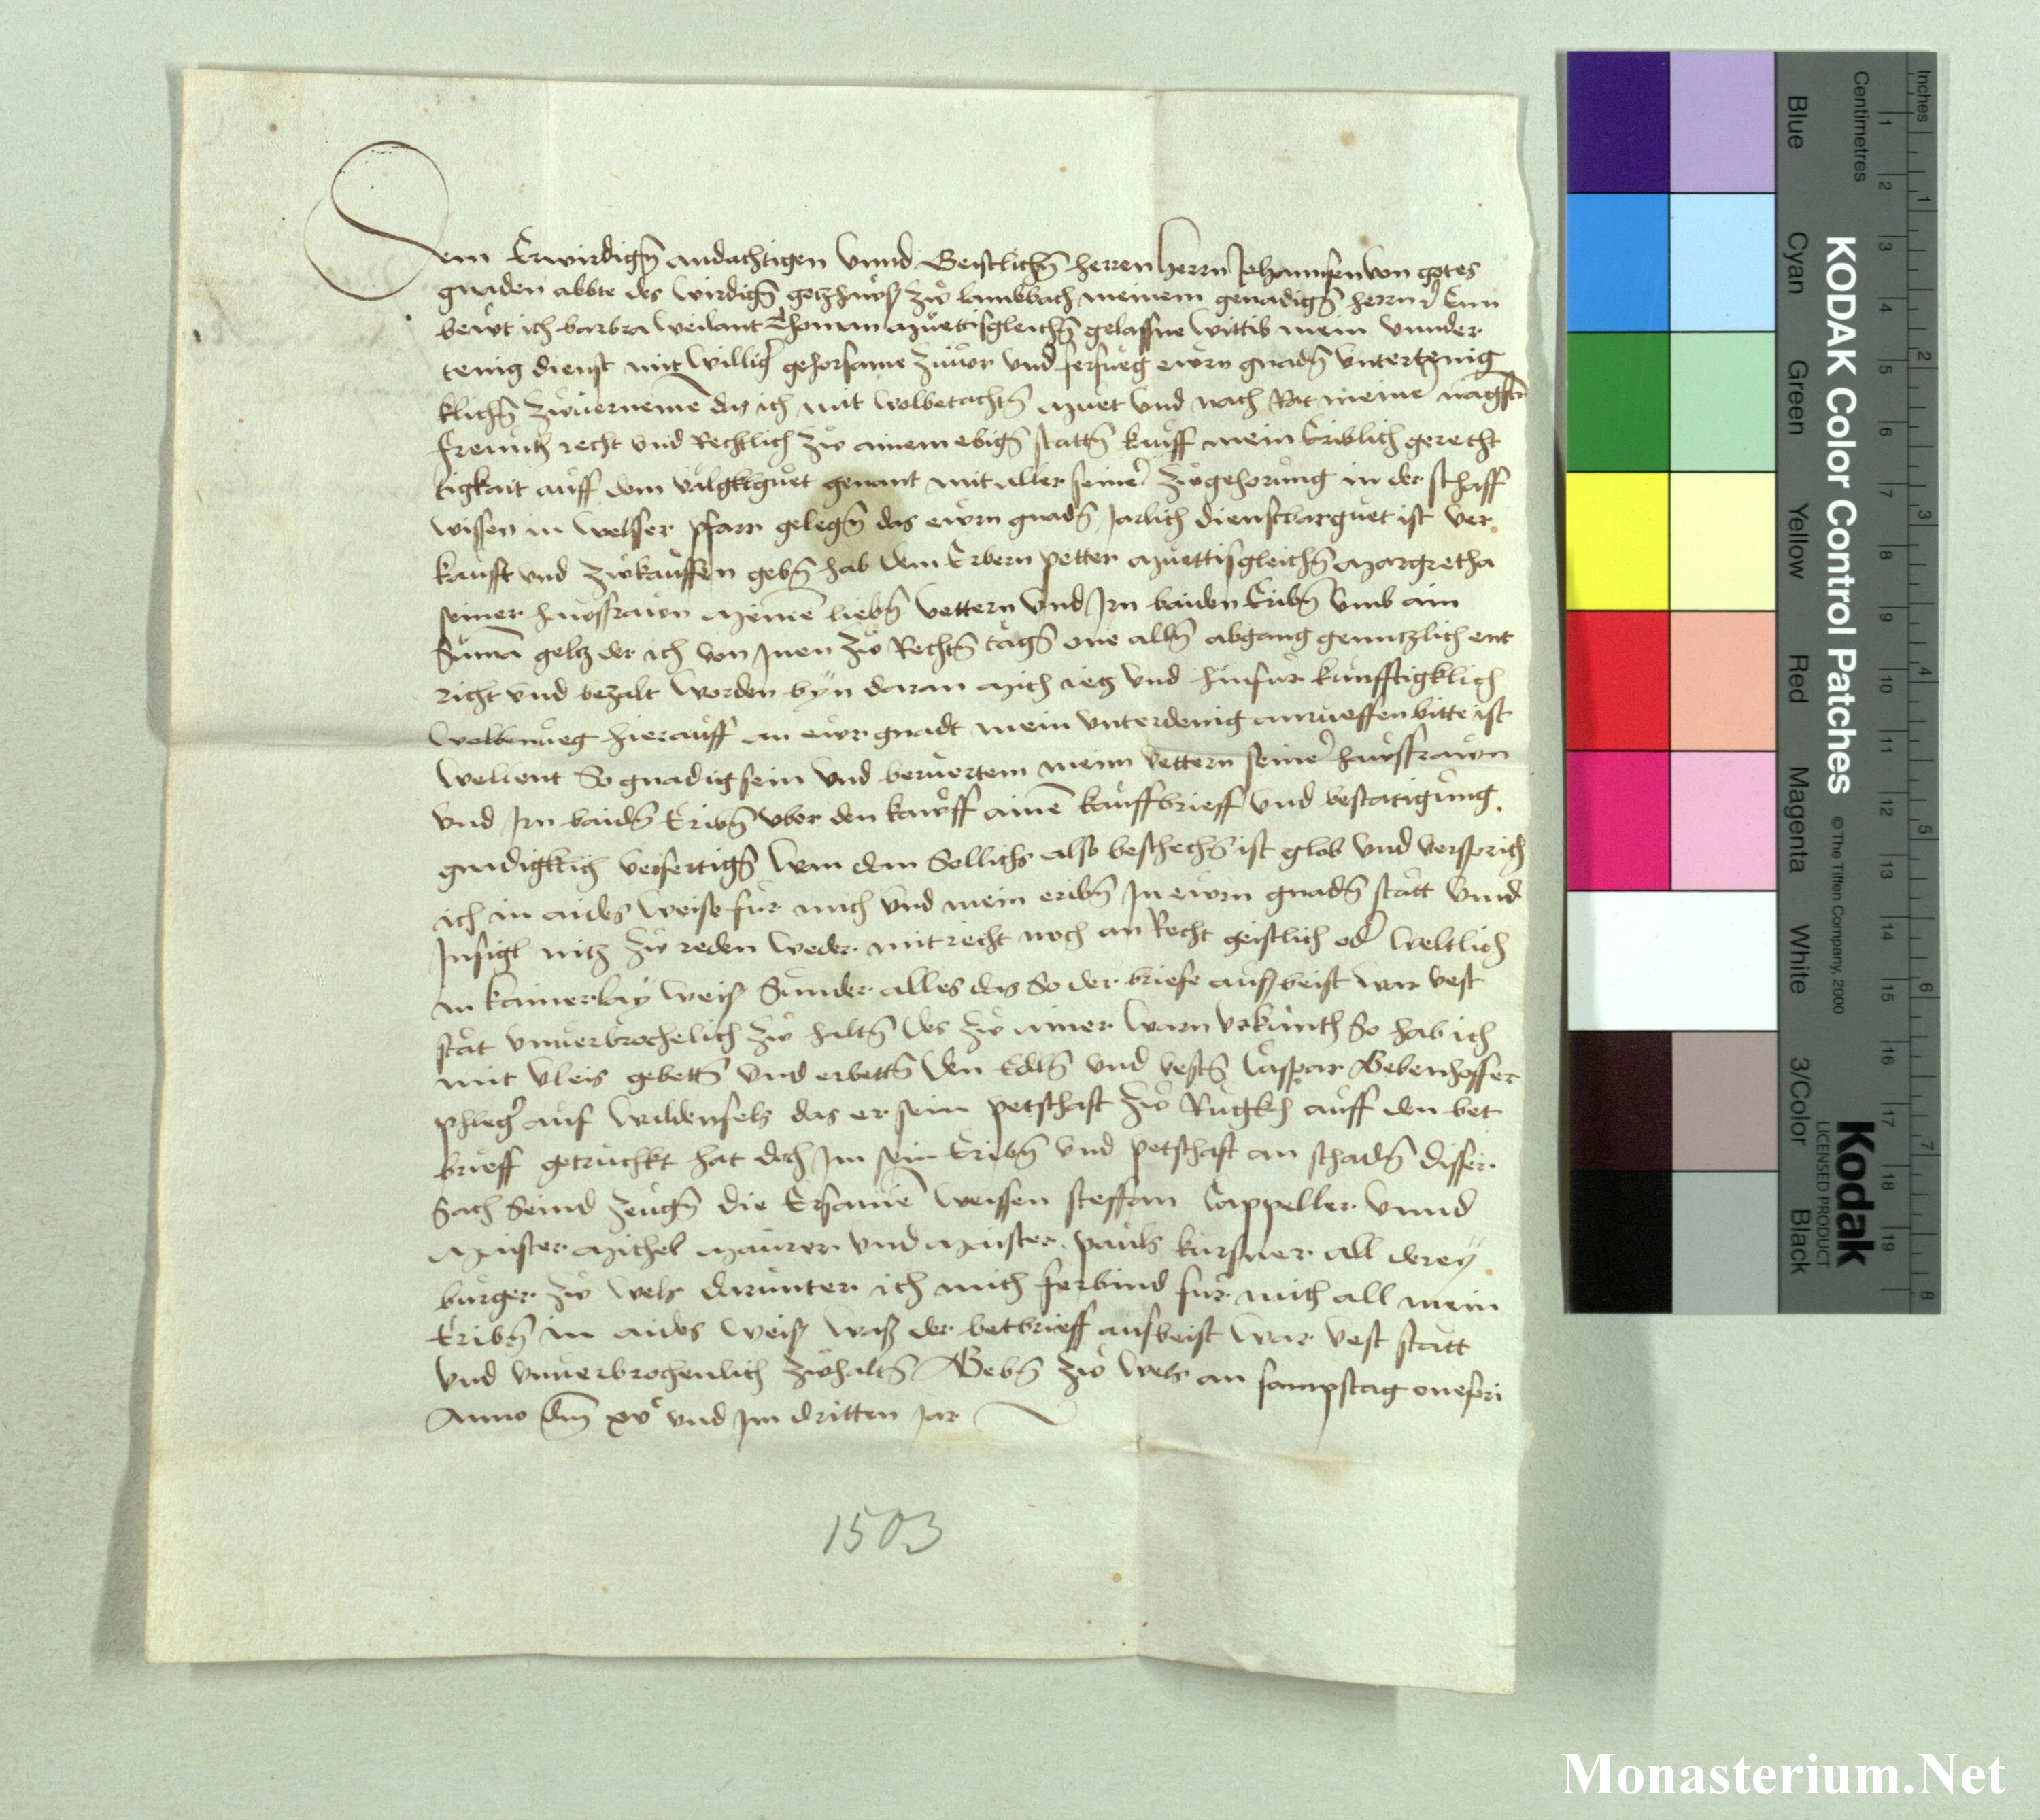 Dem Erwirdign andachtigen Vnnd Geistlichn herren Herrn Johannsen von gotes
gnaden abbte des Wirdign gotzhawß zw lambbach meinem genadign herrn
bewt ich barbra Weilant Thoman gelassne Wittib mein vnnder
tenig dienst mit Williger gehorsame zuuor vnd fersueg ewrn gnadn vntertenig
klichn zwuerneme das ich mit Wolbetachtn muet vnd nach Rat meiner nagstn
freuntz recht vnd Rechtlich zw ainem ebign stattn kauff mein Eriblich gerecht
tigkait auff dem genant mit aller seiner zwgehorung in der schaff
wissen in Welsser pfarr gelegn das ewrn gnadn Jarlich dienstbarguet ist ver
kaufft vnd zwkauffen gebn hab dem Erbern petter Margretha
seiner hawsfrawn Meine liebn vettern vnd Jrn baiden Eribn vmb ain
Suma geltz der ich von Jnen zw Rechtn tagn one alln abgang genntzlich ent
richt vnd bezalt worden byn daran Mich ietz vnd hinfur kunfftigklich
Wolbenueg hierauff an ewr gnadt mein vnterdenig anrueffen bitte ist
Wellent So gnadig sein vnd beruertem meim vettern seiner hawsfrawn
vnd Jrn baidn Eribn vber den kawff aine kauffbrieff vnd bestatigung
gnadigklich verfertign Wan dan Sollichs also beschechn ist glob vnd versprich
ich in aides Weise fur mich vnd mein eribn Jn ewrn gnadn statt Vnnd
Jnsigl nitz zw reden Weder mit recht noch an Recht geistlich oder Weltlich
in kainerlay Weiß Sunder alles das So der briefe außbeist war vest
stat vnuerbrochelich zw haltn des zw ainer Warn vrkunth So hab ich
mit vleis gebettn vnd erbettn den Edln vnd vestn Caspar Gebenhoffer
phleger auf Wildensels das er sein petschaft zw Rugkh auff den bet
brieff getruckht hat doch Jm sein Eribn vnd petschaft an schadn disser
Sach Seind zeugn die Ersame Weissen steffan Cappeller Vnnd
Maister Michel Maurer vnd Maister pauls kursner all derey
burger zw Wels darunter ich mich ferbind fur mich all mein
Eribn in aides Weiß Waß der betbrieff ausbeist War vest statt
vnd vnuerbrochenlich zwhaltn Gebn zw Wels an sampstag
Anno dm xvc vnd Jm dritten Jar
1503
KODAK Color Control Patches
© The Tiffen Company, 2000
Kodak
LICENSED PRODUCT
Inches
Centimetres
1 2 3 4 5 6 7 8 9 10 11 12 13 14 15 16 17 18 19
1 2 3 4 5 6 7 8
Blue
Cyan
Green
Yellow
Red
Magenta
White
3/Color
Black
Monasterium.Net